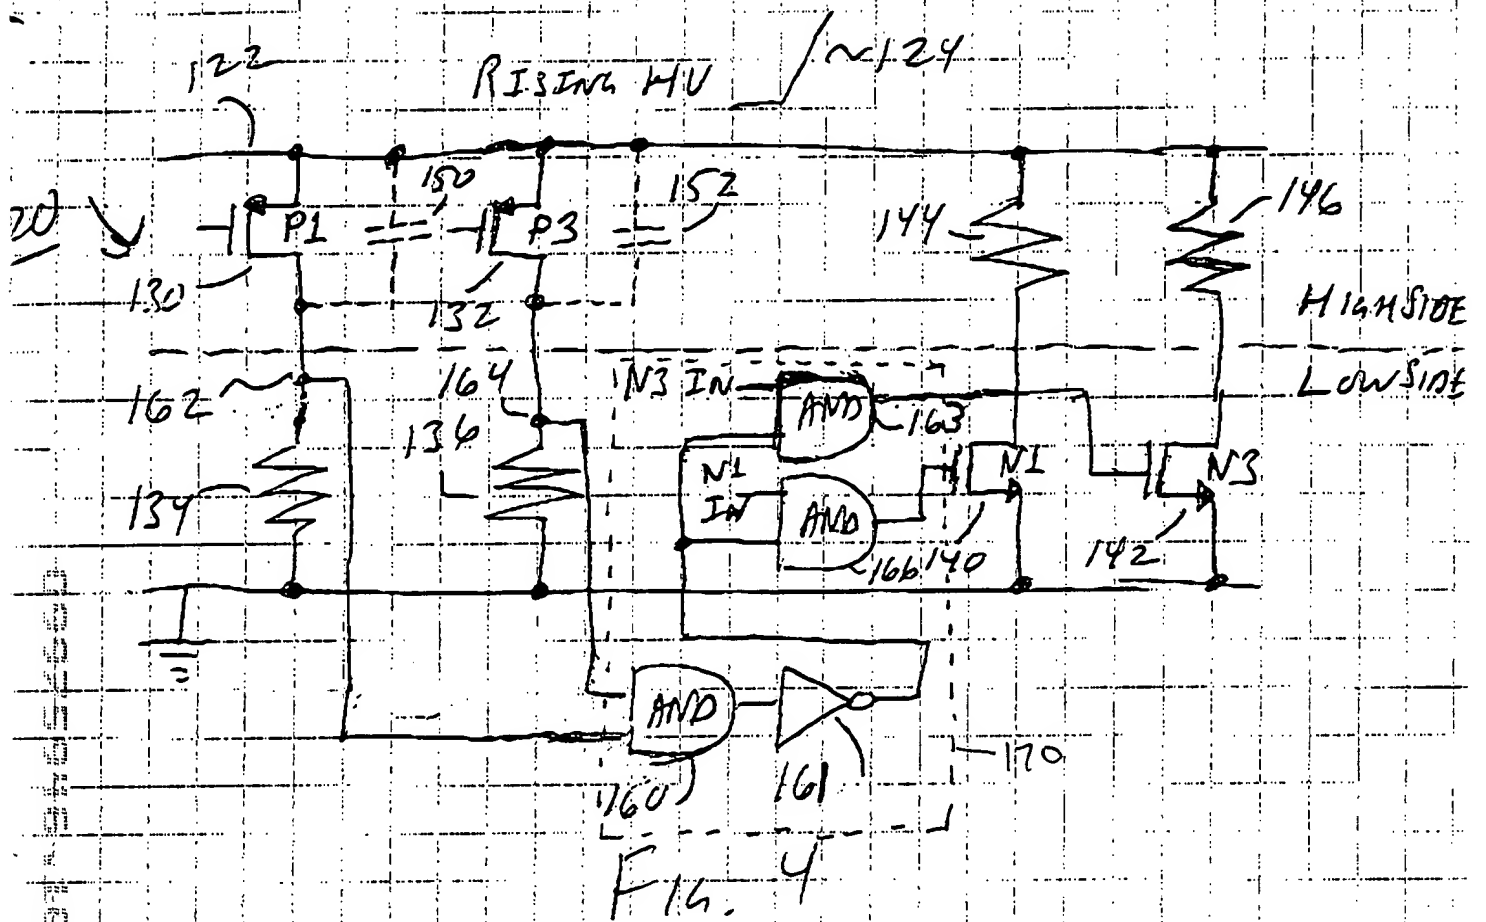 122
RISING HV
~124
20
P1
150
P3
152
144
146
130
132
HIGHSIDE
LOWSIDE
162
164
N3 IN
AND
163
136
N1
IN
AND
N1
N3
134
166
140
142
AND
160
161
170
FIG. 4